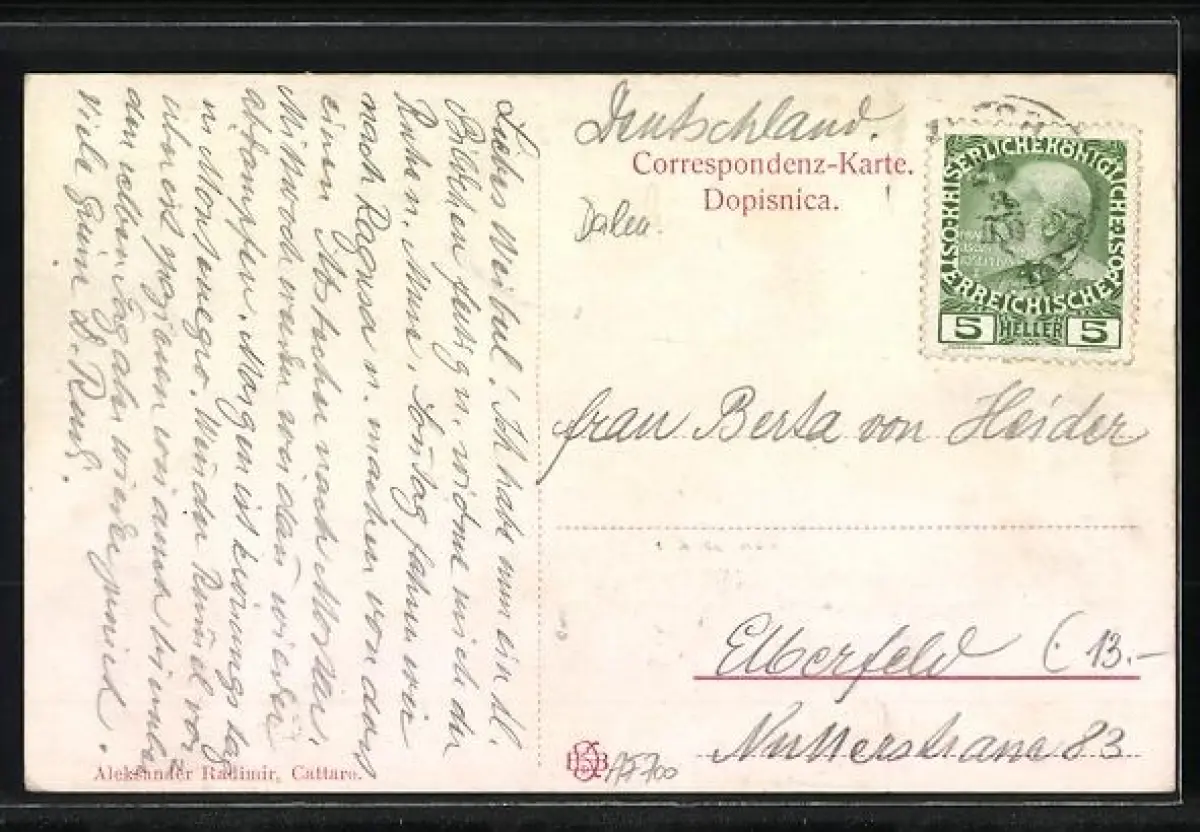 Deutschland.
Correspondenz-Karte.
Dopisnica.
Dalm.
KAISERLICHE KÖNIGLICHE ÖSTERREICHISCHE POST
5 HELLER 5
Frau Berta von Heider
Elberfeld (13.-
83
Liebes Weibel! Ich habe nun ein kl.
Bildchen fertig u. widme mich der
Ruhe n. Sontag fahren wir
nach Ragusa u. machen von dort
einen Abstecher nach Mostar.
Mittwoch werden wir dan wieder
abdampfen. Morgen ist
in Montenegro.
wir auch
den selben Tag aber wieder zurück.
Viele Grüße D. Rud.
Aleksander Radimir, Cattaro.
AF700